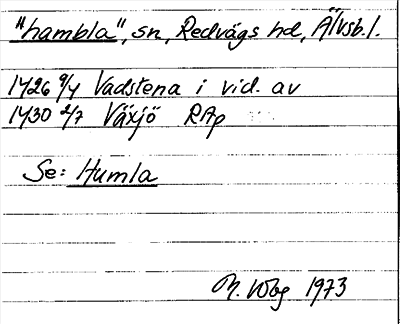 "hambla", sn, Redvägs hd, Älvsb.l.
1426 9/4 Vadstena i vid. av
1430 2/7 Växjö RAp
Se: Humla
1973